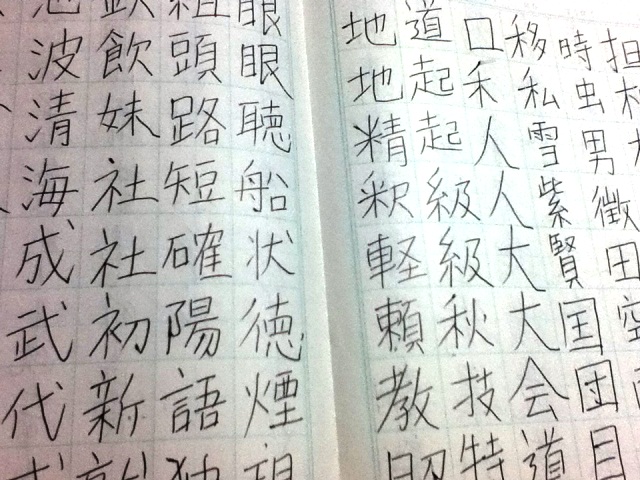 時虫男徴田空
移私雪紫賢国団目
口禾人人大大会道
道起起級級秋技特
地地精釈軽頼教
眼眼聴船状徳煙現
組頭路短確陽語独
飲飲妹社社初新新
池波清海成武代